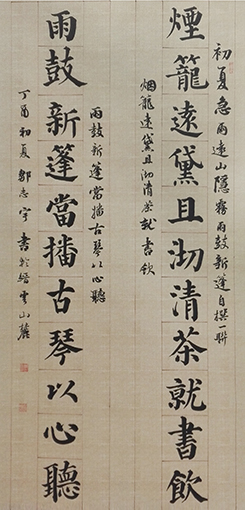 初夏急雨远山隐雾雨鼓新篷自撰一联
煙籠遠黛且沏清茶就書飲
烟笼远黛且沏清茶就书饮
雨鼓新篷當播古琴以心聽
雨鼓新篷當播古琴以心聽
丁酉初夏鄒志宇書於縉雲山麓